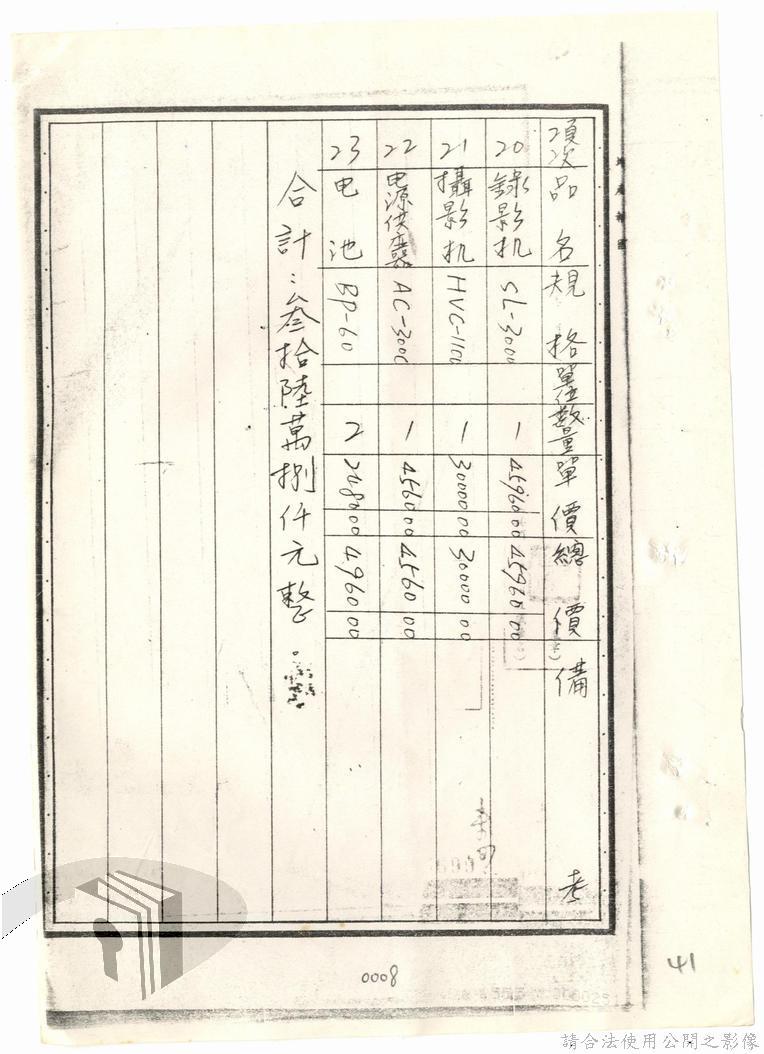 項次 品名 規格 單位 數量 單價 總價 備考
20 錄影机 SL-3000 1 45960 00 45960 00
21 攝影机 HVC-1100 1 30000 00 30000 00
22 电源供应器 AC-300C 1 4560 00 4560 00
23 电池 BP-60 2 2480 00 4960 00
合計：叁拾陸萬捌仟元整。
0008
41
請合法使用公開之影像